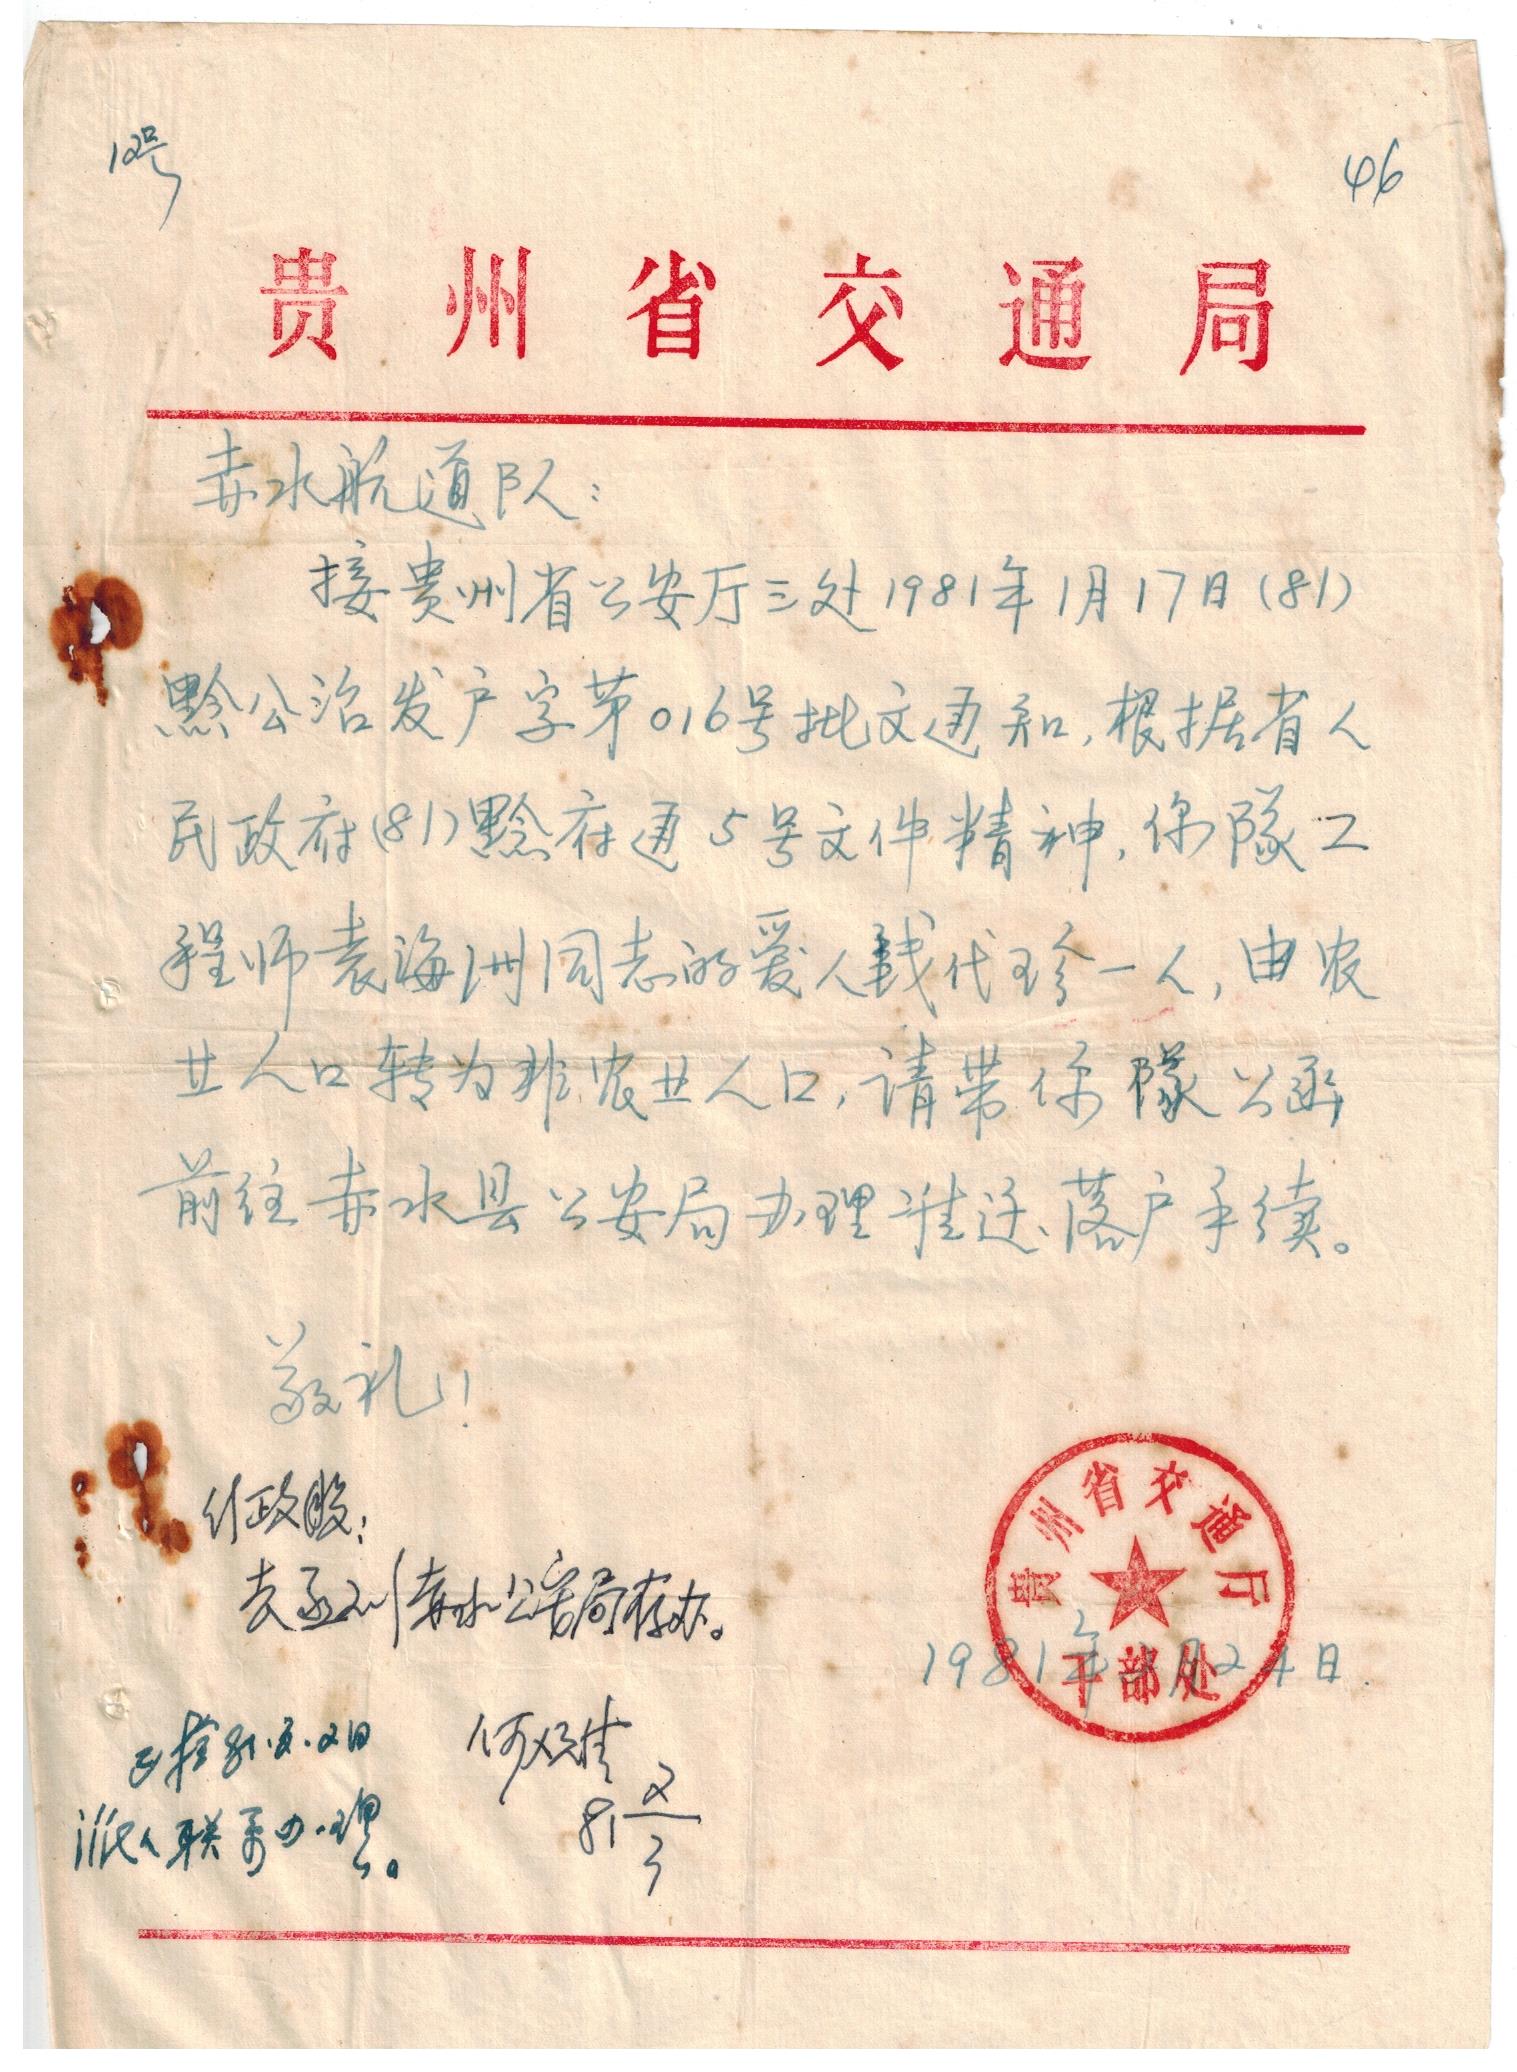 12号
46
贵州省交通局
赤水航道队:
接贵州省公安厅三处1981年1月17日(81)
黔公治发户字第016号批文通知,根据省人
民政府(81)黔府通5号文件精神,你隊工
程师袁海洲同志的爱人钱代珍一人,由农
业人口转为非农业人口,请带你隊公函
前往赤水县公安局办理准迁、落户手续。
敬礼!
贵州省交通厅
干部处
1981年1月24日
付政股:
去函到赤水公安局存办。
81.2.2日
派人联系办理。
81 2/3